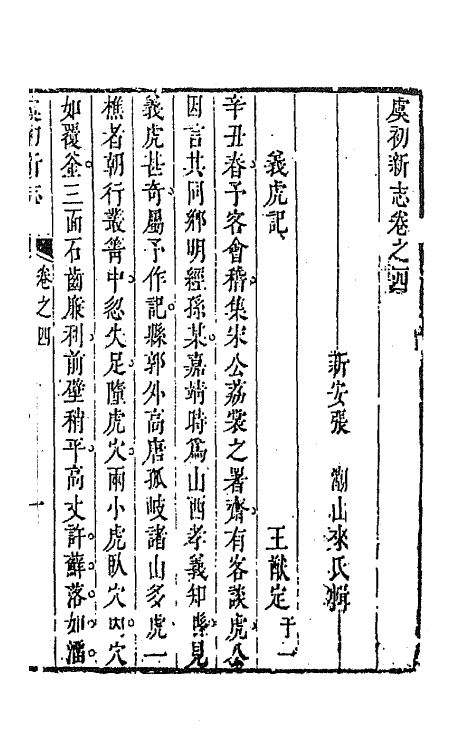 虞初新志卷之四
新安張　潮山來氏輯
義虎記　王猷定于一
辛丑春予客會稽集宋公荔裳之署齋有客談虎公
因言其同鄉明經孫某嘉靖時爲山西孝義知縣見
義虎甚奇屬予作記縣郭外高唐孤岐諸山多虎一
樵者朝行叢箐中忽失足墮虎穴兩小虎臥穴內穴
如覆釜三面石齒廉利前壁稍平高丈許蘚落如溜
虞初新志　卷之四　一